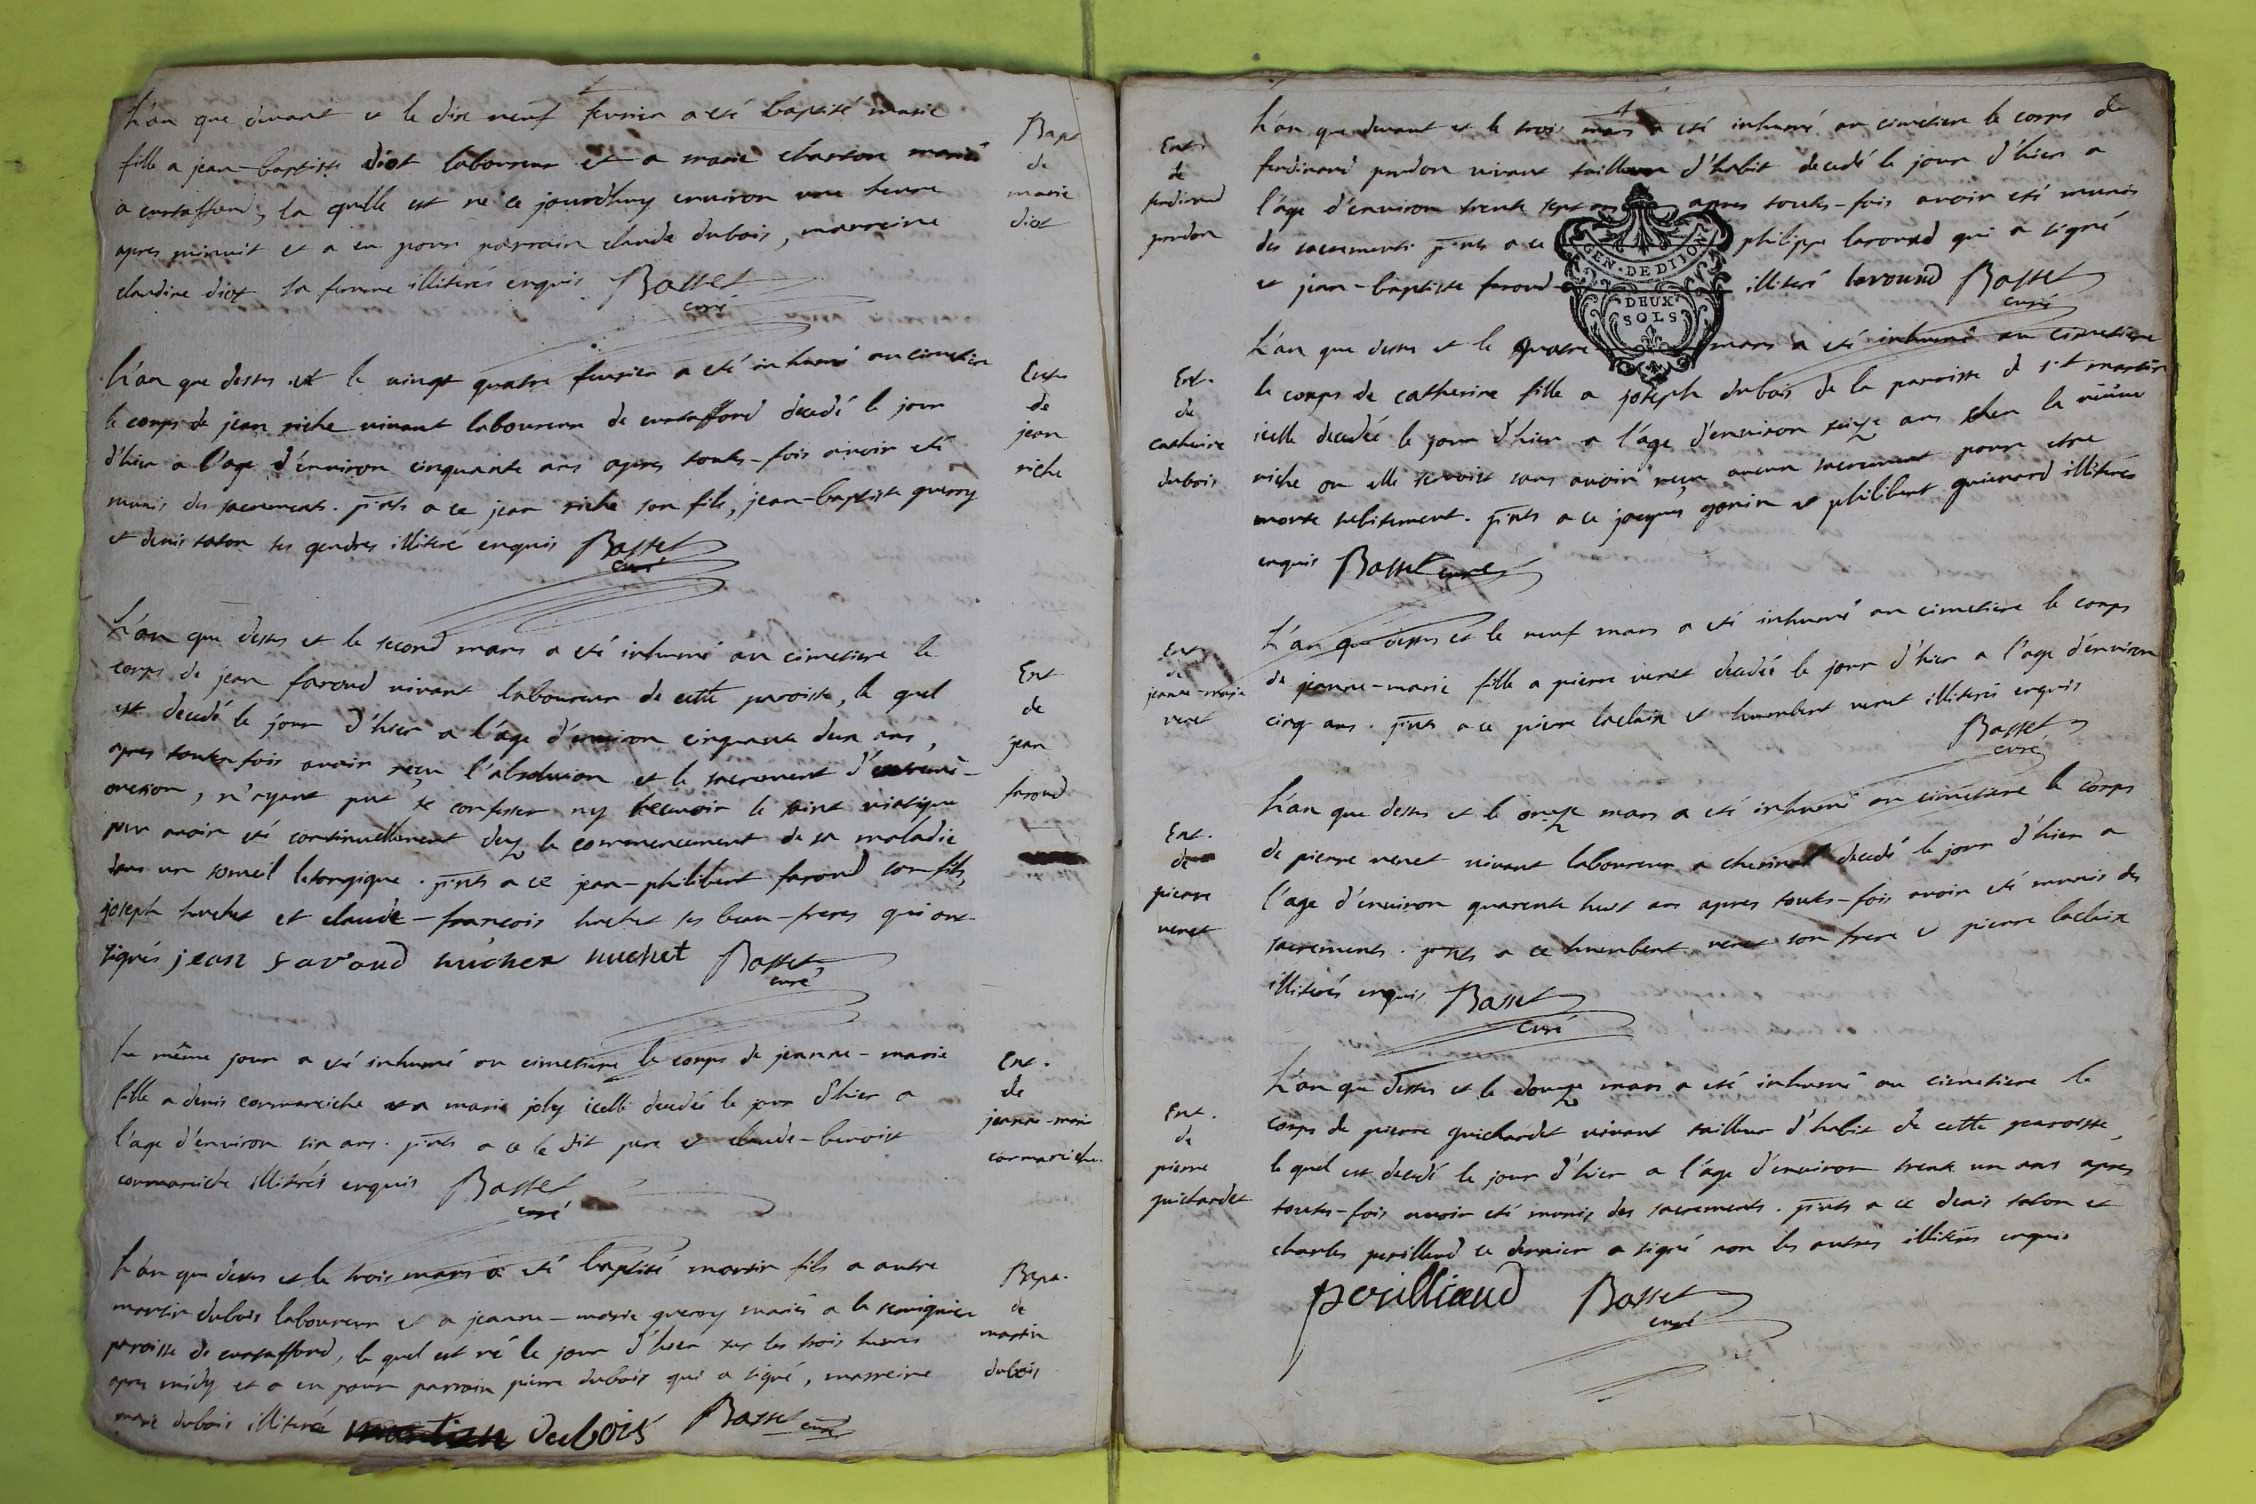 L'an que devant et le dixe neuf fevrier a eté baptisé marie
fille a jean-baptiste diot laboureur et a marie charton mariés
a curtaffond, la quelle est né ce jourdhuy environ une heure
apres minuit et a eu pour parrain claude dubois, marreine
claudine diot sa femme illiterés enquis Basset
curé
Bapt
de
marie
diot
L'an que dessus et le vingt quatre fevrier a eté inhumé au cimetier
le corps de jean riche vivant laboureur de curtaffond decedé le jour
d'hier a l'age d'environ cinquante ans apres touts-fois avoir eté
munis des sacrements. pnts a ce jean riche son fils, jean-baptiste guerry
et denis taton ses gendres illiteré enquis Basset
curé
Ent.
de
jean
riche
L'an que dessus et le second mars a eté inhumé au cimetiere le
corps de jean faroud vivant laboureur de cette paroisse, le quel
est decedé le jour d'hier a l'age d'environ cinquante deux ans,
apres toutes fois avoir reçu l'absolution et le sacrement d'extreme-
onction, n'ayant put se confesser ny recevoir le saint viatique
pour avoir eté continuellement dez le commencement de sa maladie
dans un someil letargique. pnts a ce jean-philibert faroud son fils,
joseph huchet et claude-françois huchet ses beau-freres qui ont
signés jean faroud huchet huchet Basset
curé
Ent
de
jean
faroud
Le même jour a eté inhumé au cimetiere le corps de jeanne-marie
fille a denis cormareiche et a marie joly icelle decedée le jour d'hier a
l'age d'environ six ans. pnts a ce le dit pere et claude-benoist
cormareiche illiterés enquis Basset
curé
Ent.
de
jeanne-marie
cormareiche
L'an que dessus et le trois mars a eté baptisé martin fils a autre
martin dubois laboureur et a jeanne-marie guerry mariés a la
paroisse de curtaffond, le quel est né le jour d'hier sur les trois heures
apres midy et a eu pour parrain pierre dubois qui a signé, marreine
marie dubois illiterée dubois Basset curé
Bapt.
de
martin
dubois
L'an que devant et le trois mars a eté inhumé au cimetiere le corps de
ferdinand perdon vivant tailleur d'habit decedé le jour d'hier a
l'age d'environ trente sept ans apres touts-fois avoir eté munis
des sacrements. pnts a ce philippe laround qui a signé
et jean-baptiste faroud illiteré laround Basset
curé
Ent.
de
ferdinand
perdon
GEN. DE DIJON
DEUX
SOLS
L'an que dessus et le quatre mars a eté inhumé au cimetiere
le corps de catherine fille a joseph dubois de la paroisse de st martin
icelle decedée le jour d'hier a l'age d'environ seize ans chez la veuve
riche ou elle servoit sans avoir reçu aucun sacrement pour etre
morte subitement. pnts a ce jacques gonin et philibert guienard illiterés
enquis Basset curé
Ent.
de
catherine
dubois
L'an que dessus et le neuf mars a eté inhumé au cimetiere le corps
de jeanne-marie fille a pierre venet decedée le jour d'hier a l'age d'environ
cinq ans. pnts a ce pierre laclaix et humbert venet illiterés enquis
Basset
curé
Ent.
de
jeanne-marie
venet
L'an que dessus et le onze mars a eté inhumé au cimetiere le corps
de pierre venet vivant laboureur a decedé le jour d'hier a
l'age d'environ quarente huit ans apres touts-fois avoir eté munis des
sacrements. pnts a ce humbert venet son frere et pierre laclaix
illiterés enquis Basset
curé
Ent.
de
pierre
venet
L'an que dessus et le douze mars a eté inhumé au cimetiere le
corps de pierre guichardet vivant tailleur d'habit de cette paroisse,
le quel est decedé le jour d'hier a l'age d'environ trente un ans apres
toutes-fois avoir eté munis des sacrements. pnts a ce denis taton et
charles perilliaud ce dernier a signé non les autres illiterés enquis
perilliaud Basset
curé
Ent.
de
pierre
guichardet